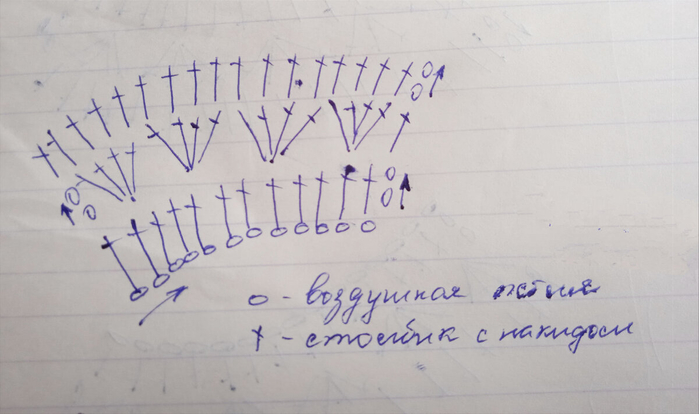 o - воздушная петля
† - столбик с накидом